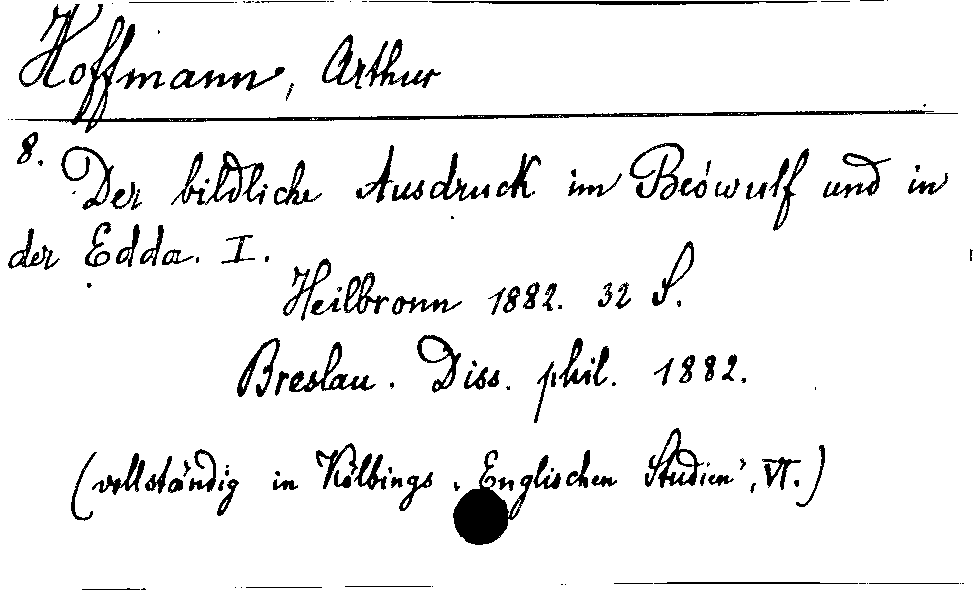 Hoffmann, Arthur
8.
Der bildliche Ausdruck im Beówulf und in
der Edda. I.
Heilbronn 1882. 32 S.
Breslau. Diss. phil. 1882.
(vollständig in Kölbings „Englischen Studien“, VI.)